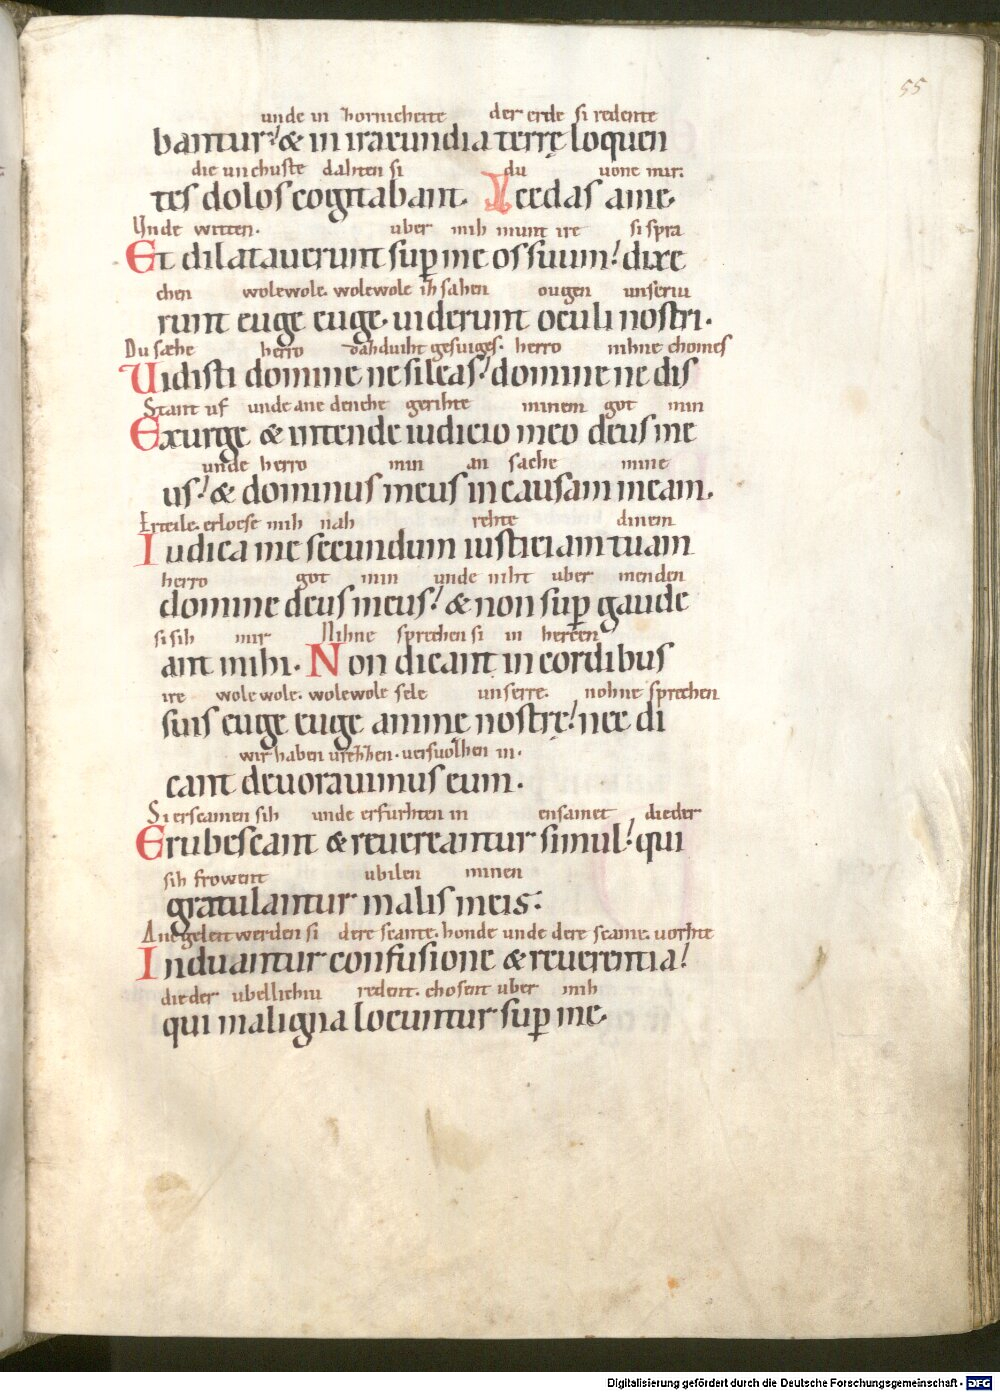 55
unde in zornicheite der erde si redente
bantur; & in iracundia terrę loquen
die unchuste dahten si du uone mir.
tes dolos cogitabant. Necdas a me.
Unde witten. uber mih munt ire si spra
Et dilatauerunt suꝑ me os suum; dixe
chen wolewole. wolewole ih sahen ougen unseriu
runt euge euge. uiderunt oculi nostri.
Du sæhe herro dahduiht gesuiges. herro nihne chomes
Uidisti domine ne sileas; domine ne dis
Stant uf unde ane denche gerihte minem got min
Exurge & intende iudicio meo deus me
unde herro min an sache mine
us; & dominus meus in causam meam.
Erteile. erloese mih nah rehte dinem
Iudica me secundum iusticiam tuam
herro got min unde niht uber menden
domine deus meus; & non suꝑ gaude
si sih mir Nihne sprechen si in hercen
ant mihi. Non dicant in cordibus
ire wole wole. wolewole sele unserre. nohne sprechen
suis euge euge animę nostrę; nec di
wir haben in.
cant deuorauimus eum.
Si erscamen sih unde erfurhten in ensamet dieder
Erubescant & reuereantur simul; qui
sih frowent ubilen minen
gratulantur malis meis:
Ane geleit werden si dere scante. honde unde dere scame. uorhte
Induantur confusione & reuerentia;
dieder ubellichiu redent. chosent uber mih
qui maligna locuntur suꝑ me.
Digitalisierung gefördert durch die Deutsche Forschungsgemeinschaft - DFG